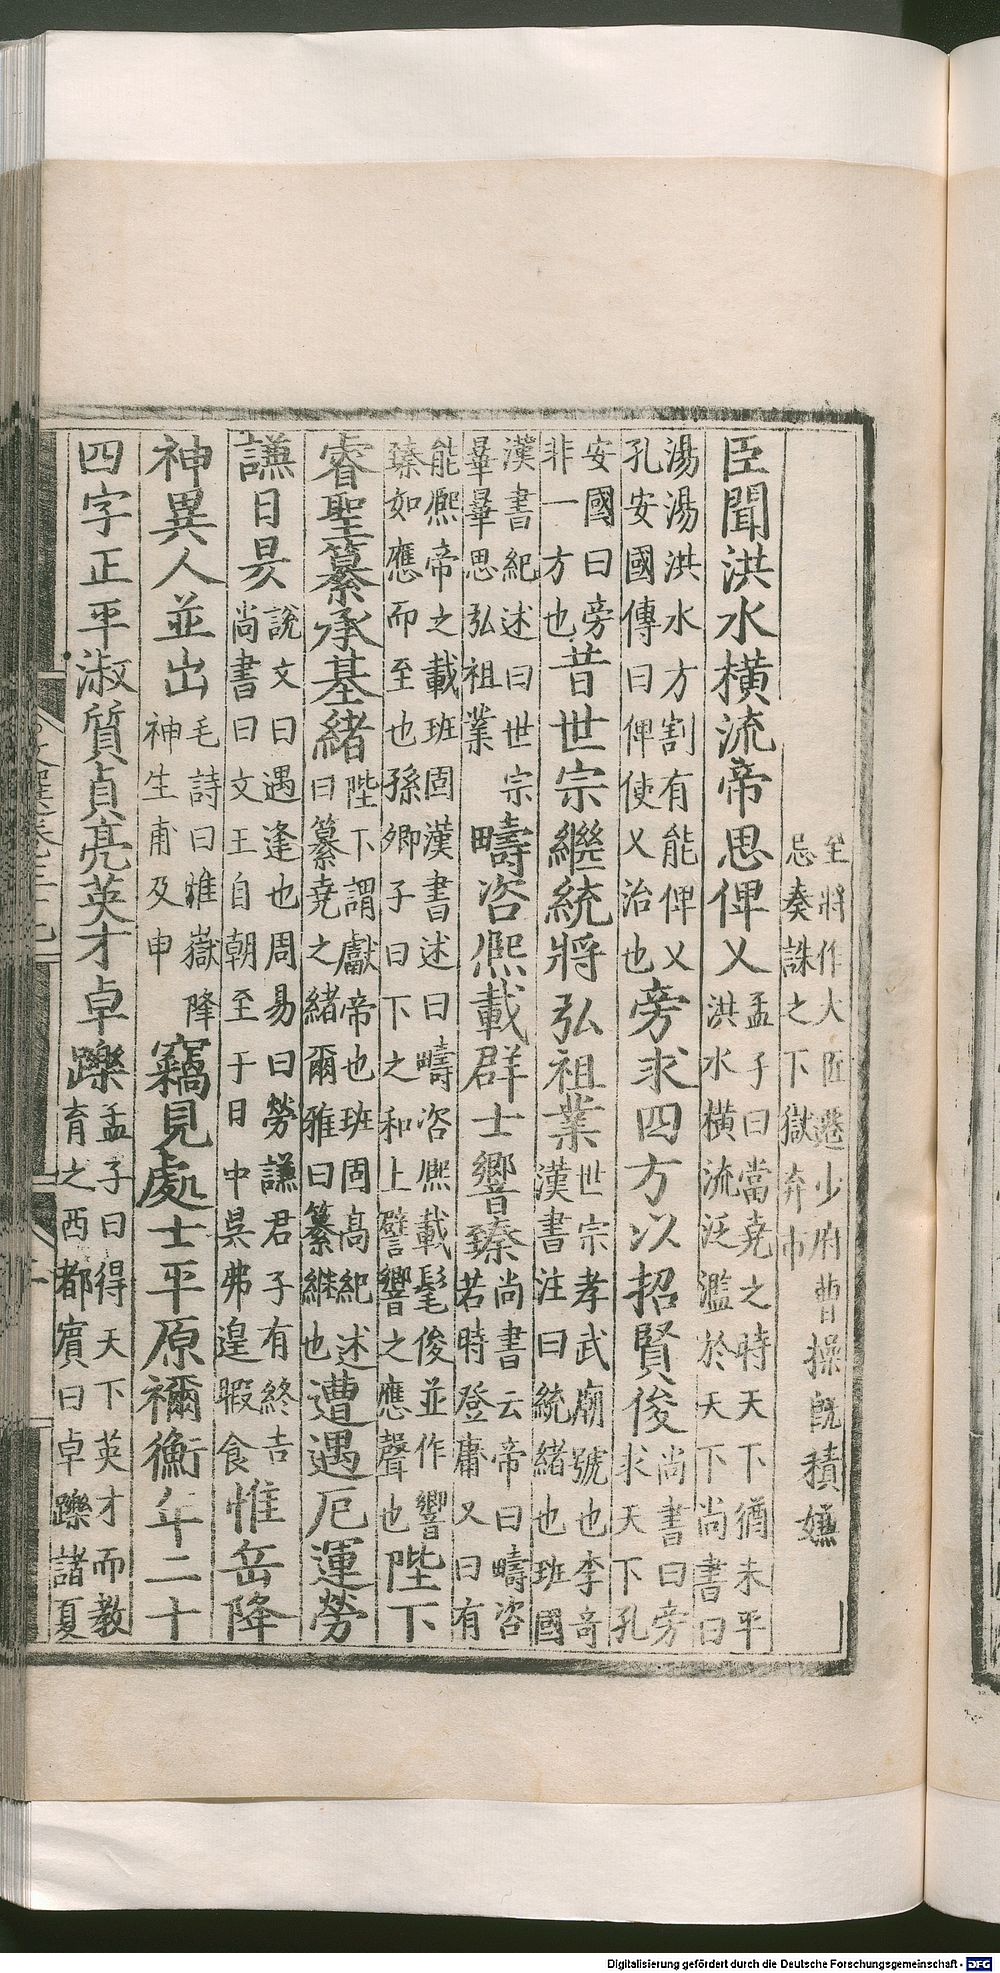 至將作大匠遷少府曹操旣積嫌
忌奏誅之下獄弃市
臣聞洪水橫流帝思俾乂
孟子曰當堯之時天下猶未平
洪水橫流泛濫於天下尚書曰
湯湯洪水方割有能俾乂
孔安國傳曰俾使乂治也
旁求四方以招賢俊
尚書曰旁
求天下孔
安國曰旁
非一方也
昔世宗繼統將弘祖業
世宗孝武廟號也李奇
漢書注曰統緒也班國
漢書紀述曰世宗
曅曅思弘祖業
疇咨熈載群士響臻
尚書云帝曰疇咨
若時登庸又曰有
能熈帝之載班固漢書述曰疇咨熈載髦俊並作響
臻如應而至也孫卿子曰下之和上譬響之應聲也
陛下
睿聖纂承基緒
陛下謂獻帝也班固高紀述
曰纂堯之緒爾雅曰纂継也
遭遇厄運勞
謙日昃
說文曰遇逢也周易曰勞謙君子有終吉
尚書曰文王自朝至于日中吳弗遑暇食
惟岳降
神異人並出
毛詩曰惟嶽降
神生甫及申
竊見處士平原禰衡年二十
四字正平淑質貞亮英才卓躒
孟子曰得天下英才而教
育之西都賔曰卓躒諸夏
Digitalisierung gefördert durch die Deutsche Forschungsgemeinschaft - DFG